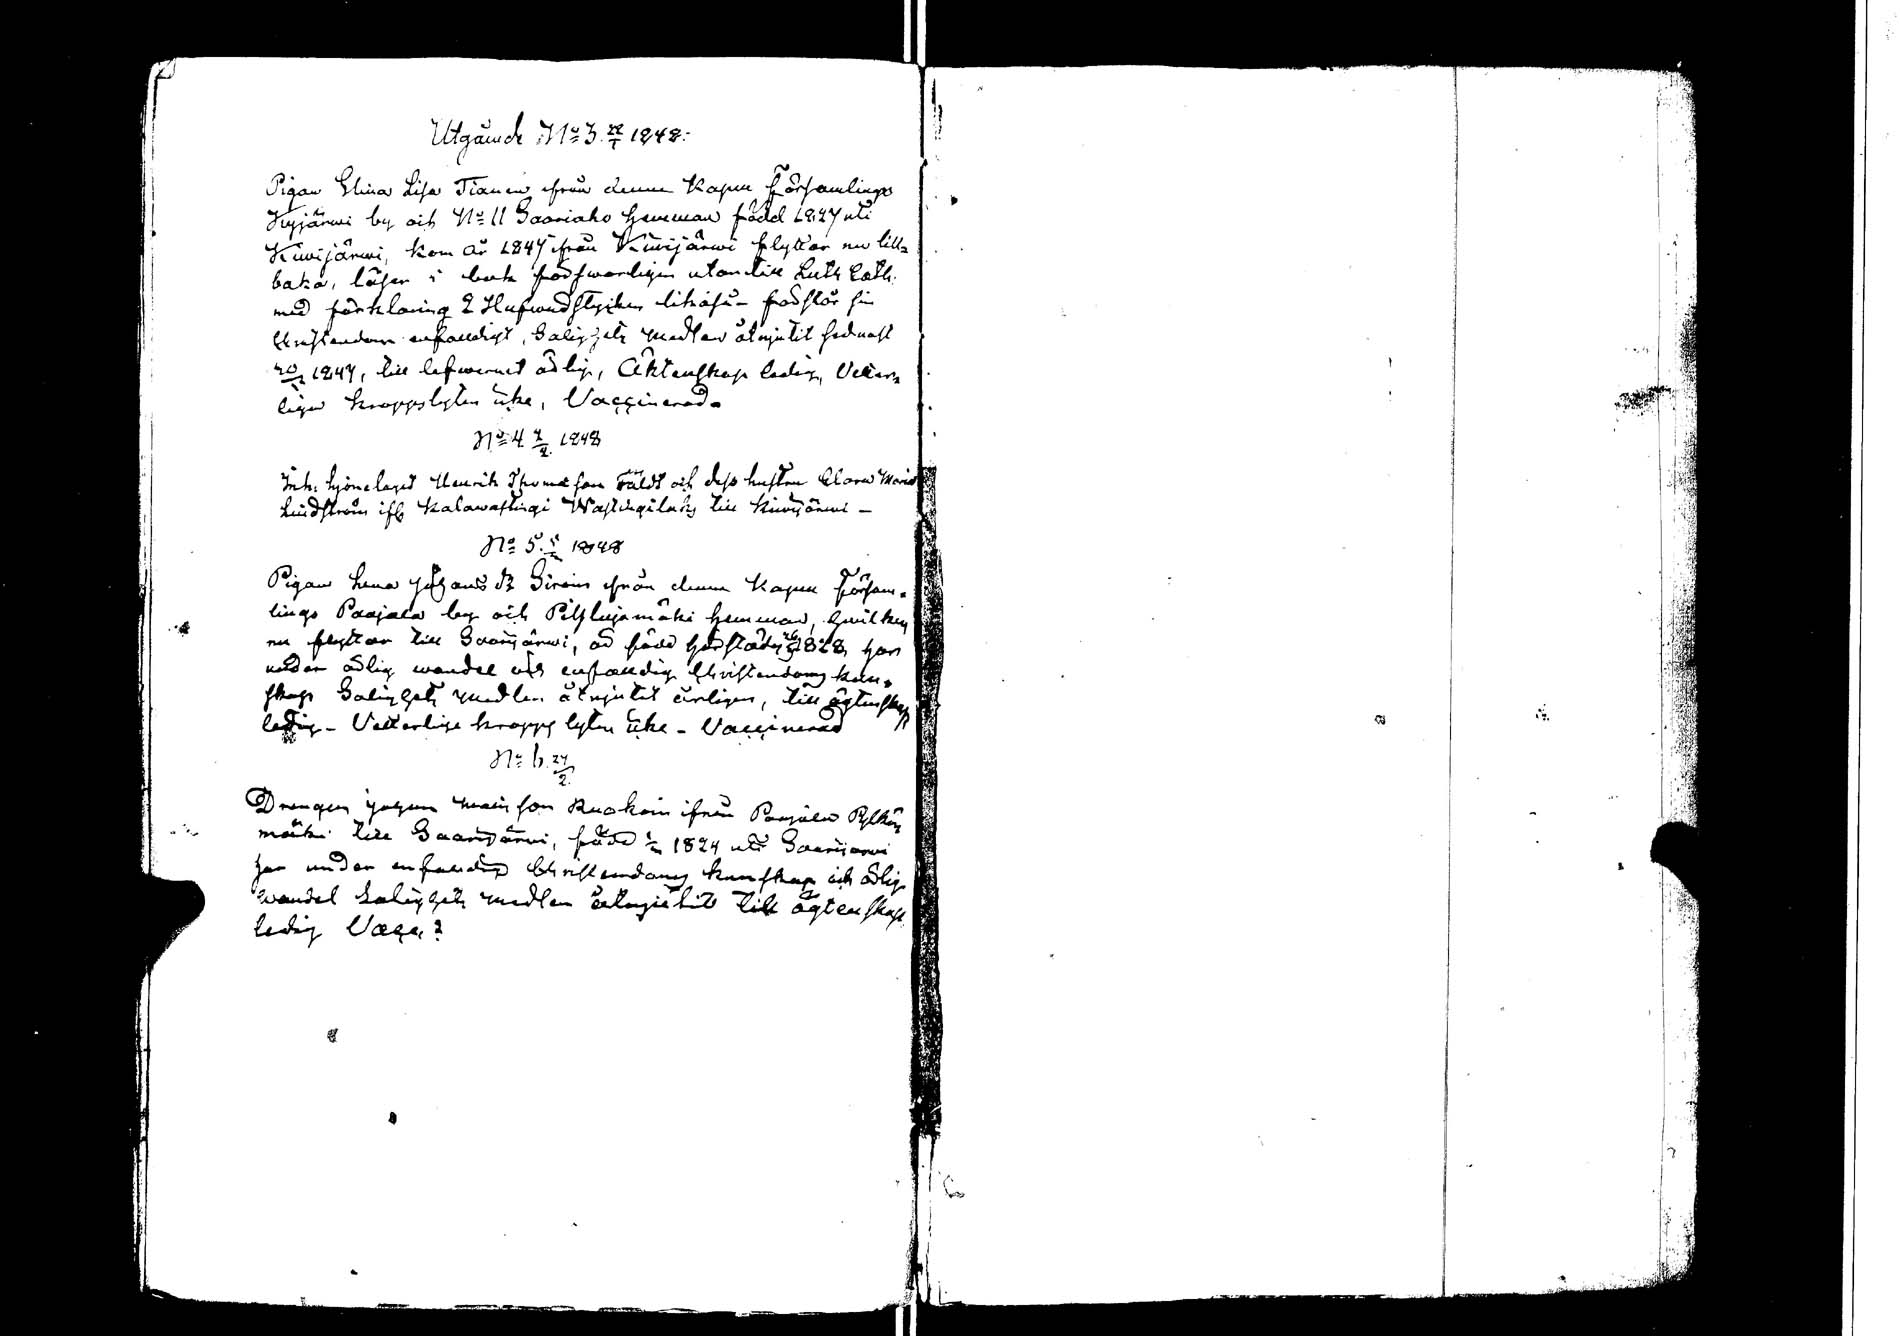 Utgående No 3. 22/1 1848.
Pigan Elina Lisa Tianen från denne Kapell Församlings
Kyjärwi by och No 11 Saariaho hemman född 1827 uti
Kiwijärwi, kom år 1847 från Kiwijärwi flyttar nu till-
baka, läser i bok försvarligen utantill Luth. Cath.
med förklaring 2 Hufwudstycken likaså – förstår sin
Christendom enfaldigt, Salighets medlen åtnjutit sednast
1847, till lefwernet ärlig, Äktenskap ledig, Veter-
ligen kroppslyten icke, Vaccinerad.
No 4 7/2. 1848
Inh. hjonelaget Henrik Thomasson Fäldt och dess hustru Clara Maria
Lindström ifr Kalawastingi till Kiwijärwi –
No 5. 1848
Pigan Lena Johans dr Siren från denne Kapell Försam-
lings Paajala by och hemman, hwilken
nu flyttar till Saarijärwi, är född 1828, har
under ärlig wandel och enfaldig Christendoms kun-
skap Salighets medlen åtnjutit årligen, till ägtenskap
ledig – Vetterlige kropps lyten icke – Vaccinerad
No 6. 27/2.
Drengen Johan Matsson Ruokoin ifrån Paajala
mäki till Saarijärwi, född 1824 uti Saarijärwi
har under enfaldig Christendoms kunskap och ärlig
wandel Salighets medlen åtnjutit till ägtenskap
ledig Vacc. ?